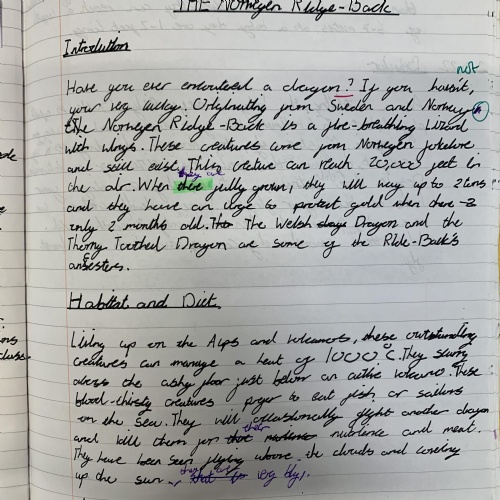 THE Norwegen Ridge-Back
Introduction
not
Have you ever encountered a dragon? If you havsit,
your very lucky. Originating from Sweden and Norway
The Norwegen Ridge-Back is a fire-breathing Lizard
with wings. These creatures come from Norwegen folklore
and still exist. This creature can reach 20,000 feet in
they are
the air. When fully grown, they will way up to 2 tons
and they have an urge to protect gold when there
only 2 months old. The Welsh Dragon and the
Thorny Toothed Dragon are some of the Ride-Back's
ansesters.
Habitat and Diet
Living up on the Alps and volcanos, these outstanding
creatures can manage a heat of 1000°C. They
across the ashy floor just below an active volcano. These
blood-thirsty creatures prefer to eat fish, or sailors
on the sea. They will occasionally fight another dragon
their
and kill them for nutrience and meat.
They have been seen flying above the clouds and
up the sun very high.